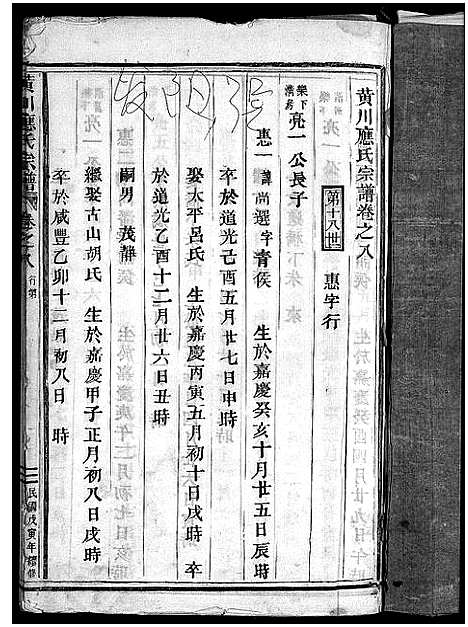 黄川應氏宗譜卷之八
第十八世 惠字行
樂下溝房亮一公長子
惠一 諱尚選字青侯 生於嘉慶癸亥十月廿五日辰時
卒於道光己酉五月廿七日申時
娶太平呂氏 生於嘉慶丙寅五月初十日戌時 卒
於道光乙酉十二月廿六日丑時
嗣男 茂靜
繼娶古山胡氏 生於嘉慶甲子正月初八日戌時
卒於咸豐乙卯十二月初八日 時
黄川應氏宗譜 卷之八 行第 一 民國戊寅年續修